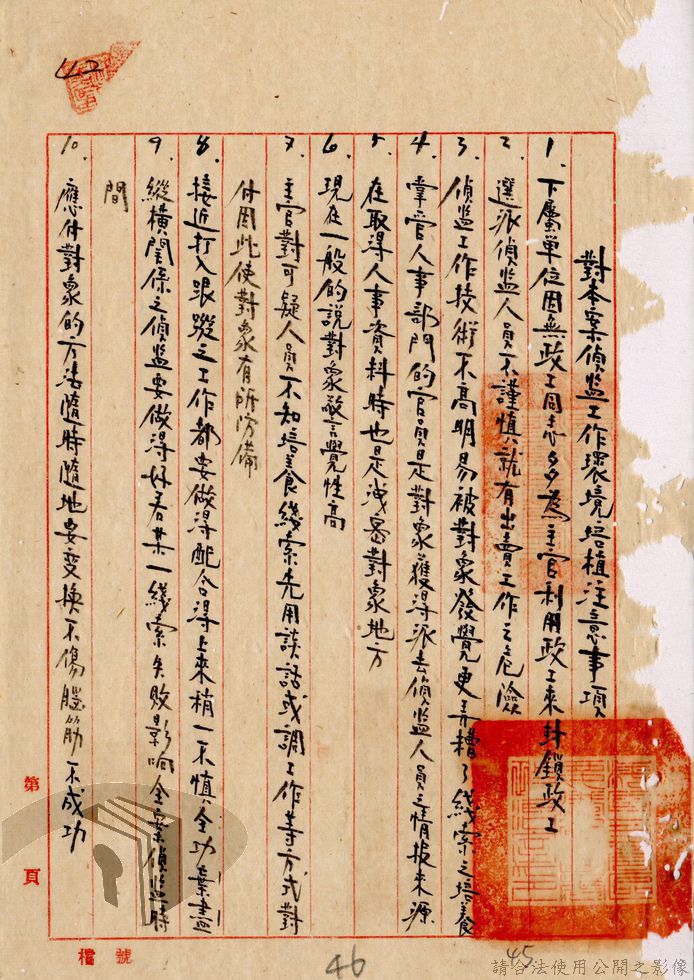 對本案偵監工作環境培植注意事項
1. 下屬單位因無政工同志多為主官利用政工來封鎖政工
2. 選派偵監人員不謹慎就有出賣工作之危險
3. 偵監工作技術不高明易被對象發覺更弄糟了綫索之培養
4. 掌管人事部門的官員是對象獲得派去偵監人員之情报來源
5. 在取得人事資料時也是洩露對象地方
6. 現在一般的說對象警覺性高
7. 主官對可疑人員不知培養綫索先用談話或調工作等方式對
付因此使對象有所防備
8. 接近打入跟蹤之工作都要做得配合得上來稍一不慎全功棄盡
9. 縱橫関係之偵監要做得好若某一綫索失敗影响全案偵監時
間
10. 應付對象的方法隨時隨地要變換不傷腦筋不成功
第 頁
檔 號
42
45
46
請合法使用公開之影像